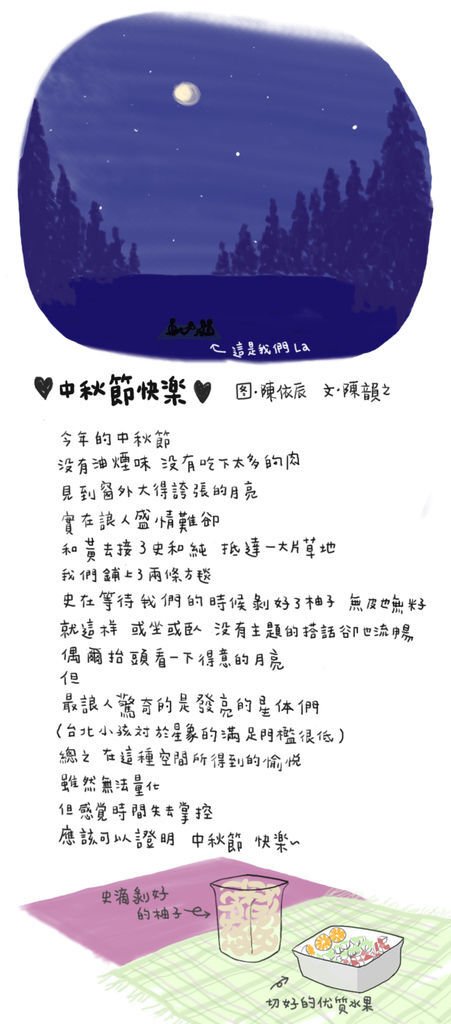 這是我們La
中秋節快樂
図・陳依辰 文・陳韻之
今年的中秋節
沒有油煙味 沒有吃下太多的肉
見到窗外大得誇張的月亮
實在讓人盛情難卻
和黃去接了史和純 抵達一大片草地
我們鋪上了兩條方毯
史在等待我們的時候剝好了柚子 無皮也無籽
就這样 或坐或臥 没有主題的搭話卻也流暢
偶爾抬頭看一下得意的月亮
但
最讓人驚奇的是發亮的星体們
(台北小孩対於星象的滿足門檻很低)
總之 在這種空間所得到的愉悅
雖然無法量化
但感覚時間失去掌控
應該可以證明 中秋節 快樂~
史滴剝好
的柚子
切好的优質水果